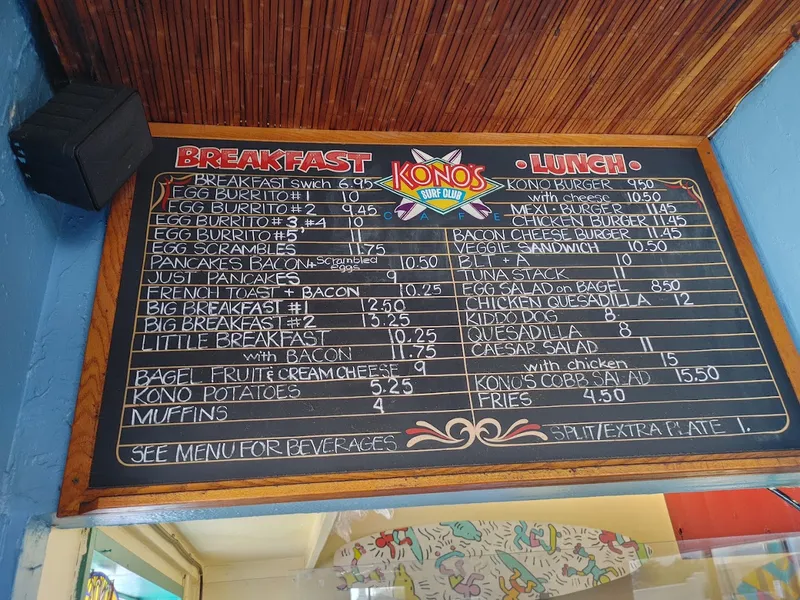 BREAKFAST
BREAKFAST SWICH 6.95
EGG BURRITO #1 10
EGG BURRITO #2 9.45
EGG BURRITO #3 #4 10
EGG BURRITO #5 11
EGG SCRAMBLES 11.75
PANCAKES BACON + Scrambled eggs 10.50
JUST PANCAKES 9
FRENCH TOAST + BACON 10.25
BIG BREAKFAST #1 12.50
BIG BREAKFAST #2 13.25
LITTLE BREAKFAST 10.25
with BACON 11.75
BAGEL FRUIT & CREAM CHEESE 9
KONO POTATOES 5.25
MUFFINS 4
SEE MENU FOR BEVERAGES
KONO'S
SURF CLUB
CAFE
• LUNCH •
KONO BURGER 9.50
with cheese 10.50
MEXI • BURGER 11.45
CHICKEN BURGER 11.45
BACON CHEESE BURGER 11.45
VEGGIE SANDWICH 10.50
BLT + A 10
TUNA STACK 11
EGG SALAD on BAGEL 8.50
CHICKEN QUESADILLA 12
KIDDO DOG 8
QUESADILLA 8
CAESAR SALAD 11
with chicken 15
KONO'S COBB SALAD 15.50
FRIES 4.50
SPLIT/EXTRA PLATE 1.